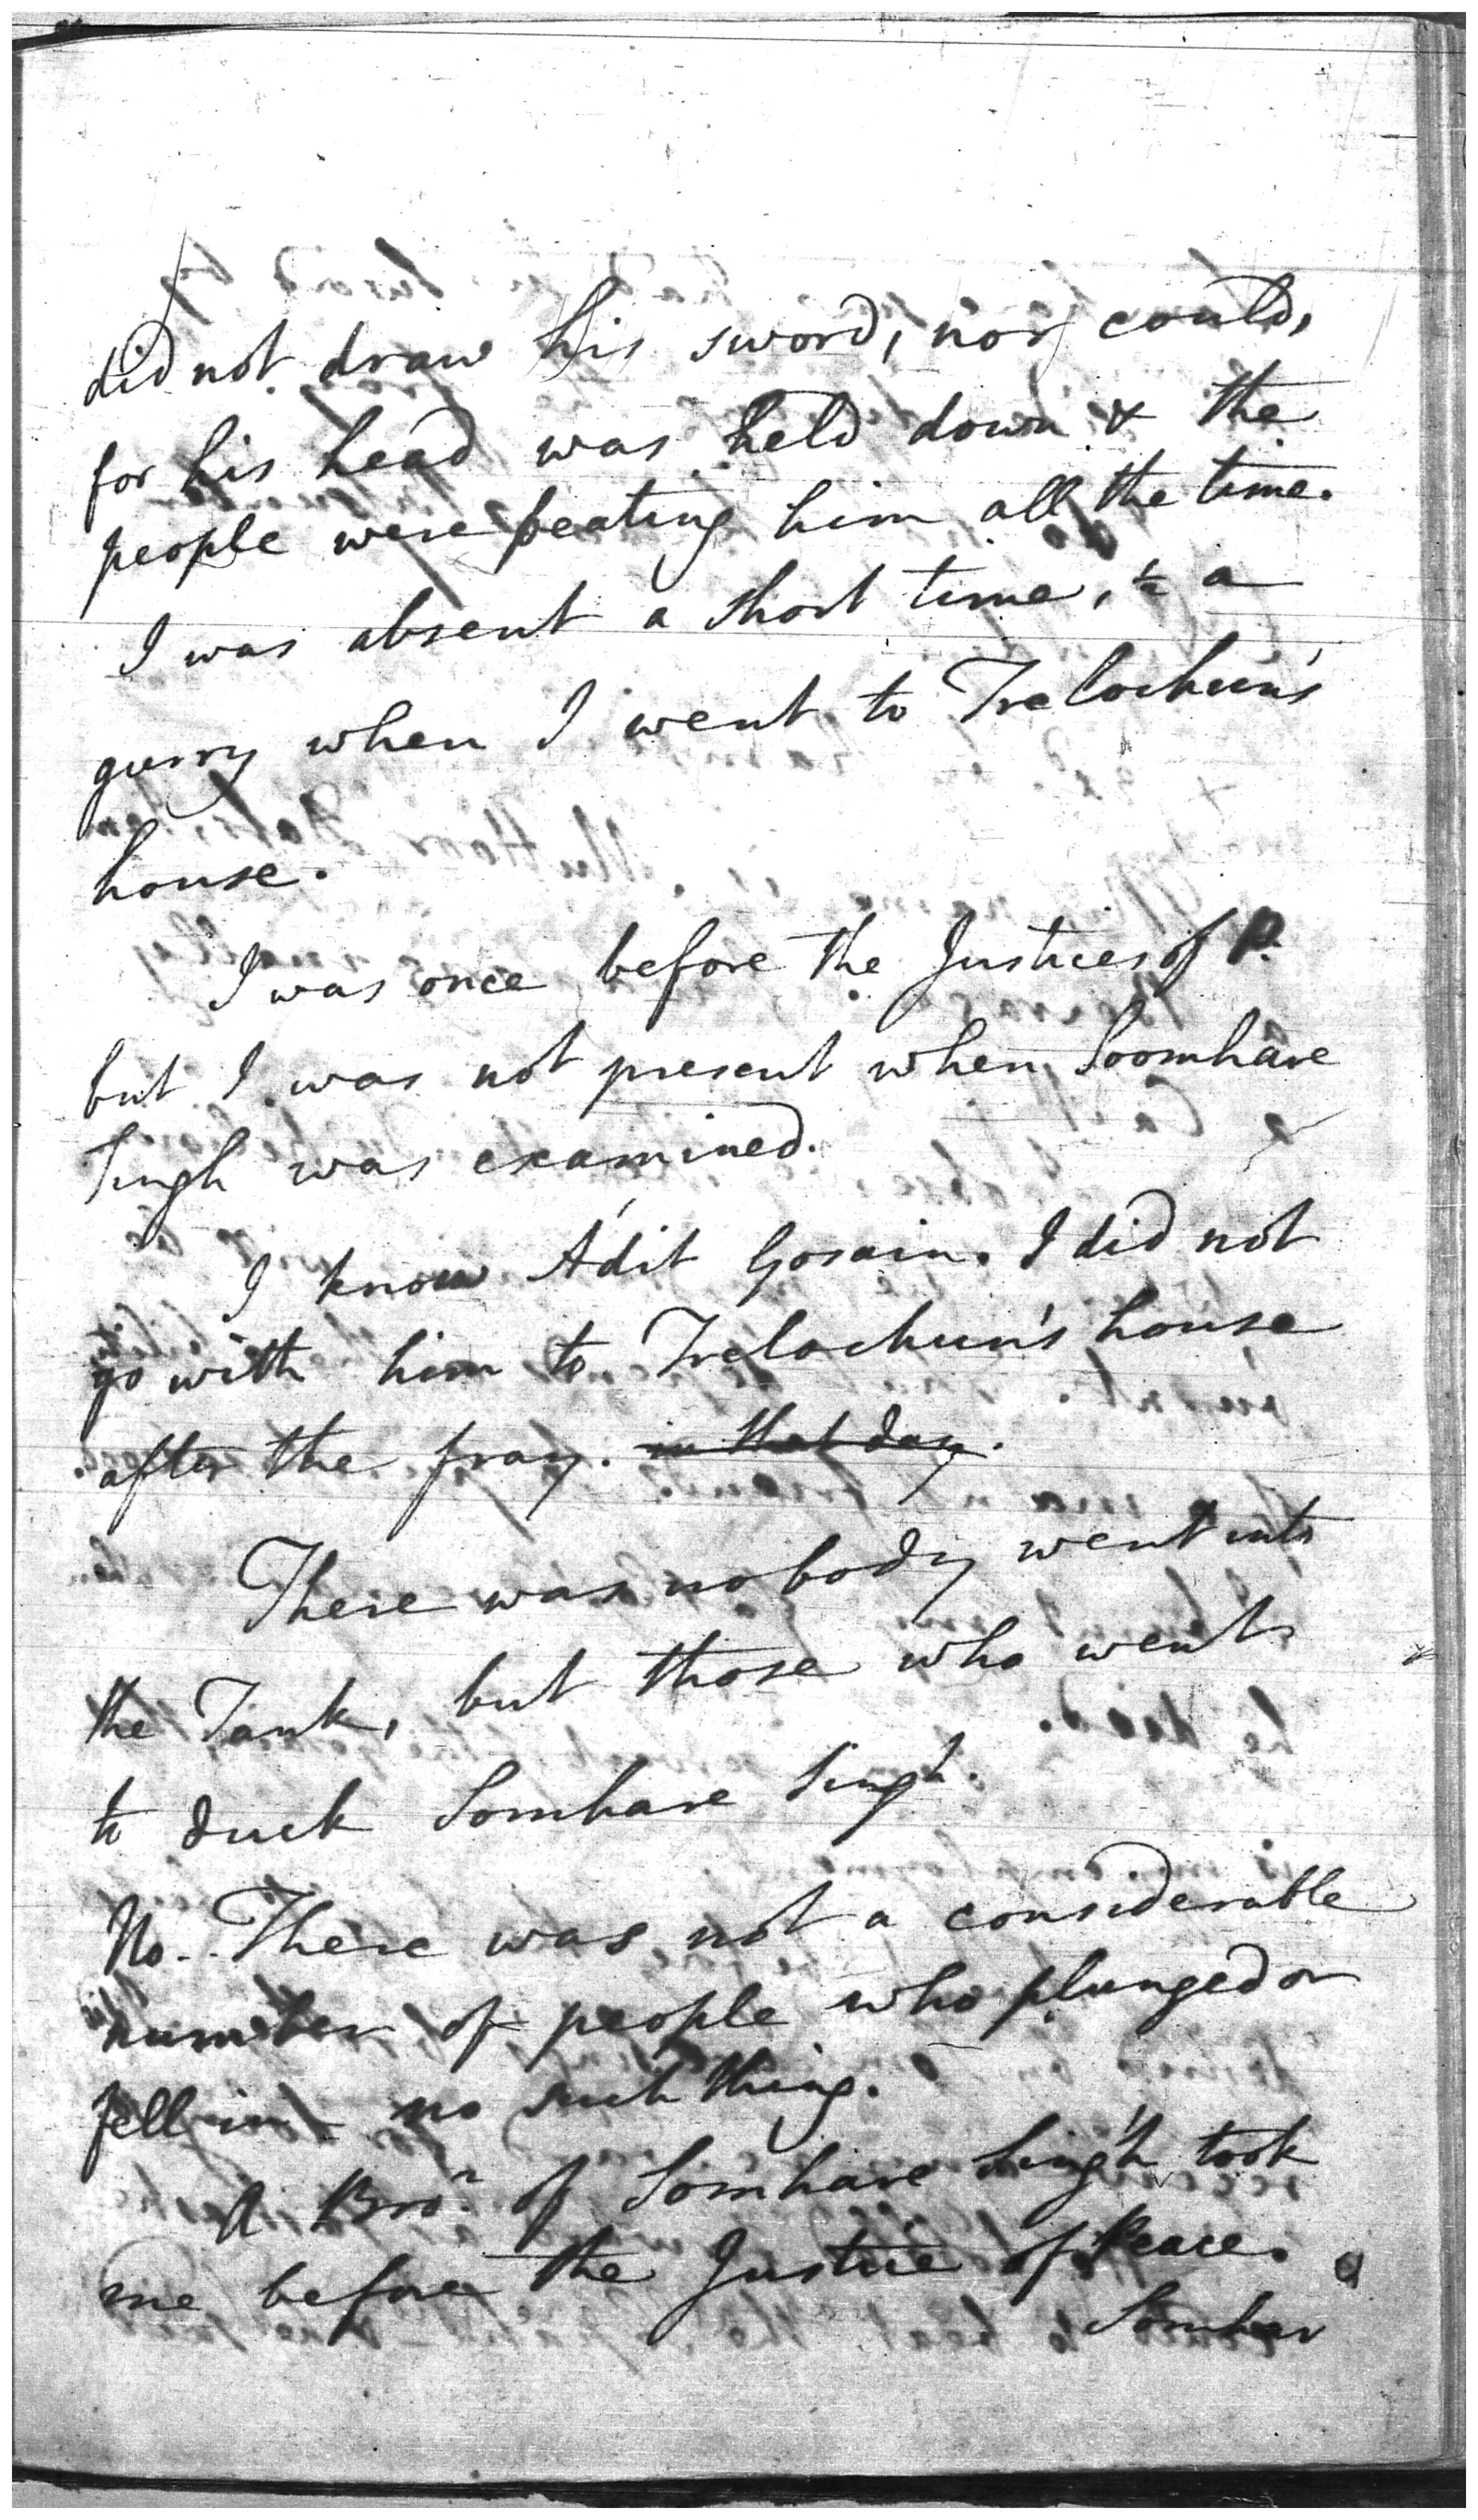 did not draw his sword, nor could,
for his head was held down & the
people were beating him all the time.
I was absent a short time, ½ a
gurry when I went to Trelochun's
house.
I was once before the Justices of P.
but I was not present when Soomhare
Singh was examined.
I know Adit Gosain. I did not
go with him to Trelochun's house
after the fray. in that day.
There was nobody went into
the Tank, but those who went
to duck Somhare Singh.
No.. There was not a considerable
number of people who plunged or
fell in - no such thing.
A Bror. of Somhare Singh took
me before the Justice of Peace.
Somhar